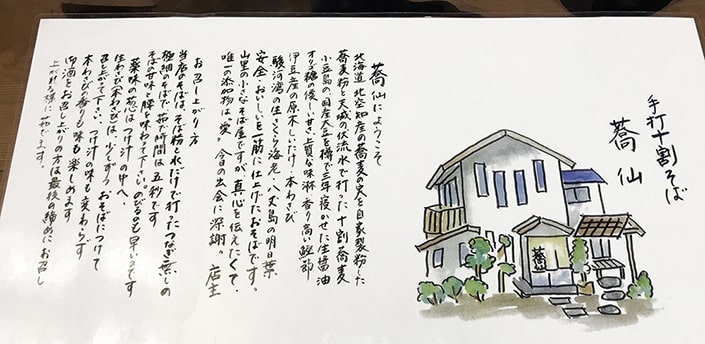 手打十割そば
蕎仙
蕎
蕎仙にようこそ
北海道北空知産の蕎麦の実を自家製粉した
蕎麦粉と天城の伏流水で打った十割蕎麦
小豆島の国産大豆を樽で三年寝かせた生醤油
オリゴ糖の優しい甘さ上質な味淋香り高い鰹節
伊豆産の原木しいたけ・本わさび
駿河湾の生さくら海老・八丈島の明日葉
安全・おいしいを一筋に仕上げたおそばです。
山里の小さなそば屋ですが真心を伝えたくて、
唯一の添加物は"愛"今日の出会に深謝。店主
お召し上がり方
当店のそばは、そば粉と水だけで打ったつなぎ無しの
極細のそばで茹で時間は五秒です
そばの甘味と腰を味わって下さい、のびるのも早いのです
薬味の葱はつけ汁の中へ
生わさび(本わさび)は、少しずつおそばにつけて
召し上がって下さい、つけ汁の味も変わらず
本わさびの香りも味も楽しめます
御酒をお召し上がりの方は最後の締めにお召し
上がれる様に茹でます。